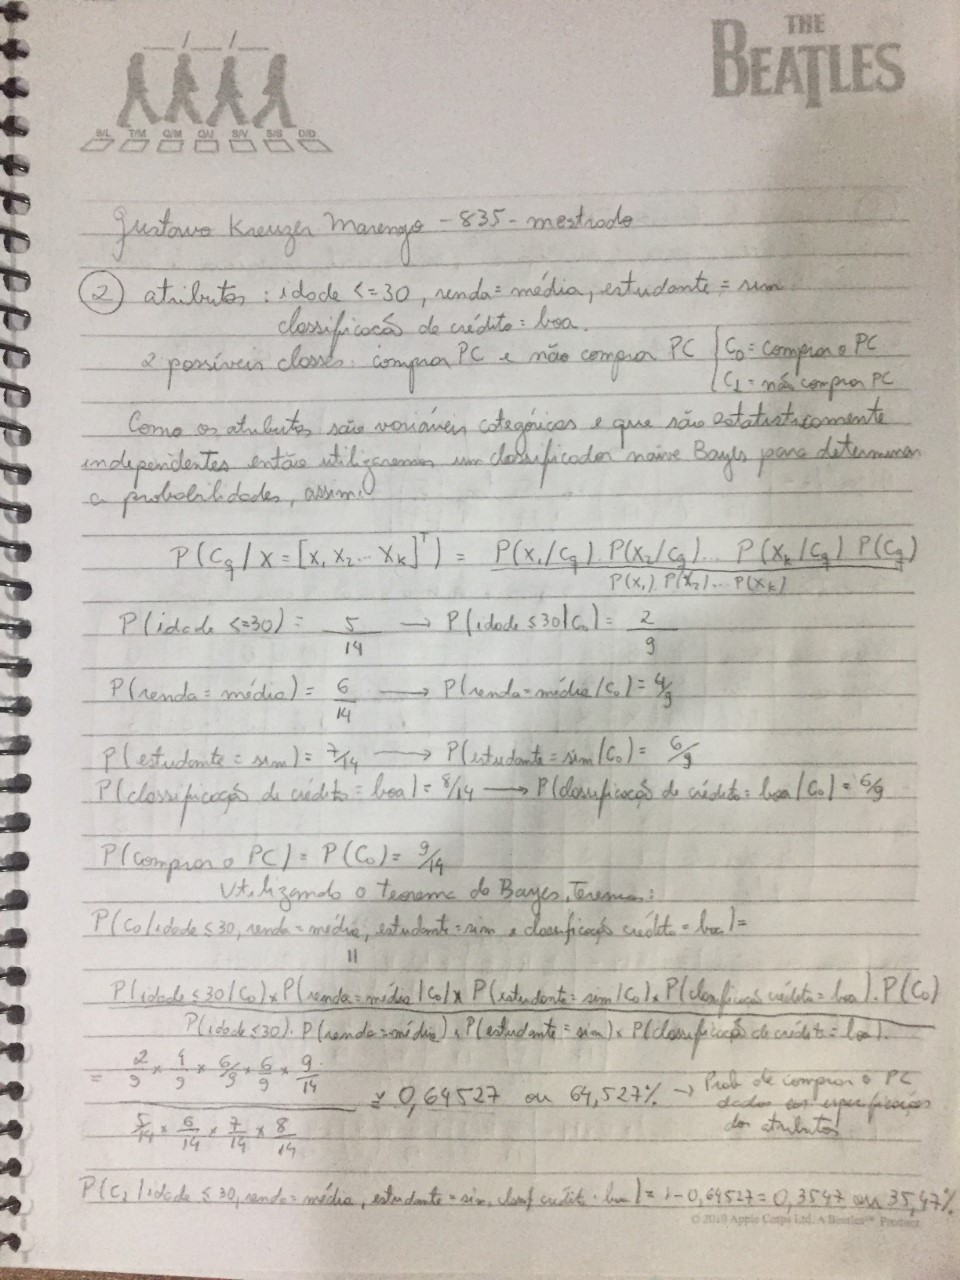 THE
BEATLES
S/L T/M Q/M Q/J S/V S/S D/D
Gustavo Kreuzer Marengo - 835 - mestrado
2 atributos : idade <=30, renda = média, estudante = sim
classificação de crédito = boa.
2 possíveis classes: comprar PC e não comprar PC { C0 = comprar o PC
C1 = não comprar PC
Como os atributos são variáveis categóricas e que são estatisticamente
independentes então utilizaremos um classificador naive Bayes para determinar
a probabilidades, assim:
P(Cq / X = [x1 x2 ... xk]^T) = P(x1/Cq) . P(x2/Cq) ... P(xk/Cq) P(Cq)
P(x1) . P(x2) ... P(xk)
P(idade <=30) = 5/14 → P(idade ≤ 30|C0) = 2/9
P(renda = média) = 6/14 → P(renda = média/C0) = 4/9
P(estudante = sim) = 7/14 → P(estudante = sim/C0) = 6/9
P(classificação de crédito = boa) = 8/14 → P(classificação de crédito = boa|C0) = 6/9
P(comprar o PC) = P(C0) = 9/14
Utilizando o teorema de Bayes, teremos:
P(C0|idade ≤ 30, renda = média, estudante = sim e classificação crédito = boa) =
=
P(idade ≤ 30/C0) x P(renda = média|C0) x P(estudante = sim/C0) x P(classificação crédito = boa) . P(C0)
P(idade ≤ 30) . P(renda = média) x P(estudante = sim) x P(classificação de crédito = boa).
= 2/9 x 4/9 x 6/9 x 6/9 x 9/14
5/14 x 6/14 x 7/14 x 8/14
≅ 0,64527 ou 64,527% → Prob de comprar o PC
dados as especificações
dos atributos
P(C1|idade ≤ 30, renda = média, estudante = sim, classif crédito = boa) = 1 - 0,64527 = 0,3547 ou 35,47%
© 2010 Apple Corps Ltd. A Beatles™ Product